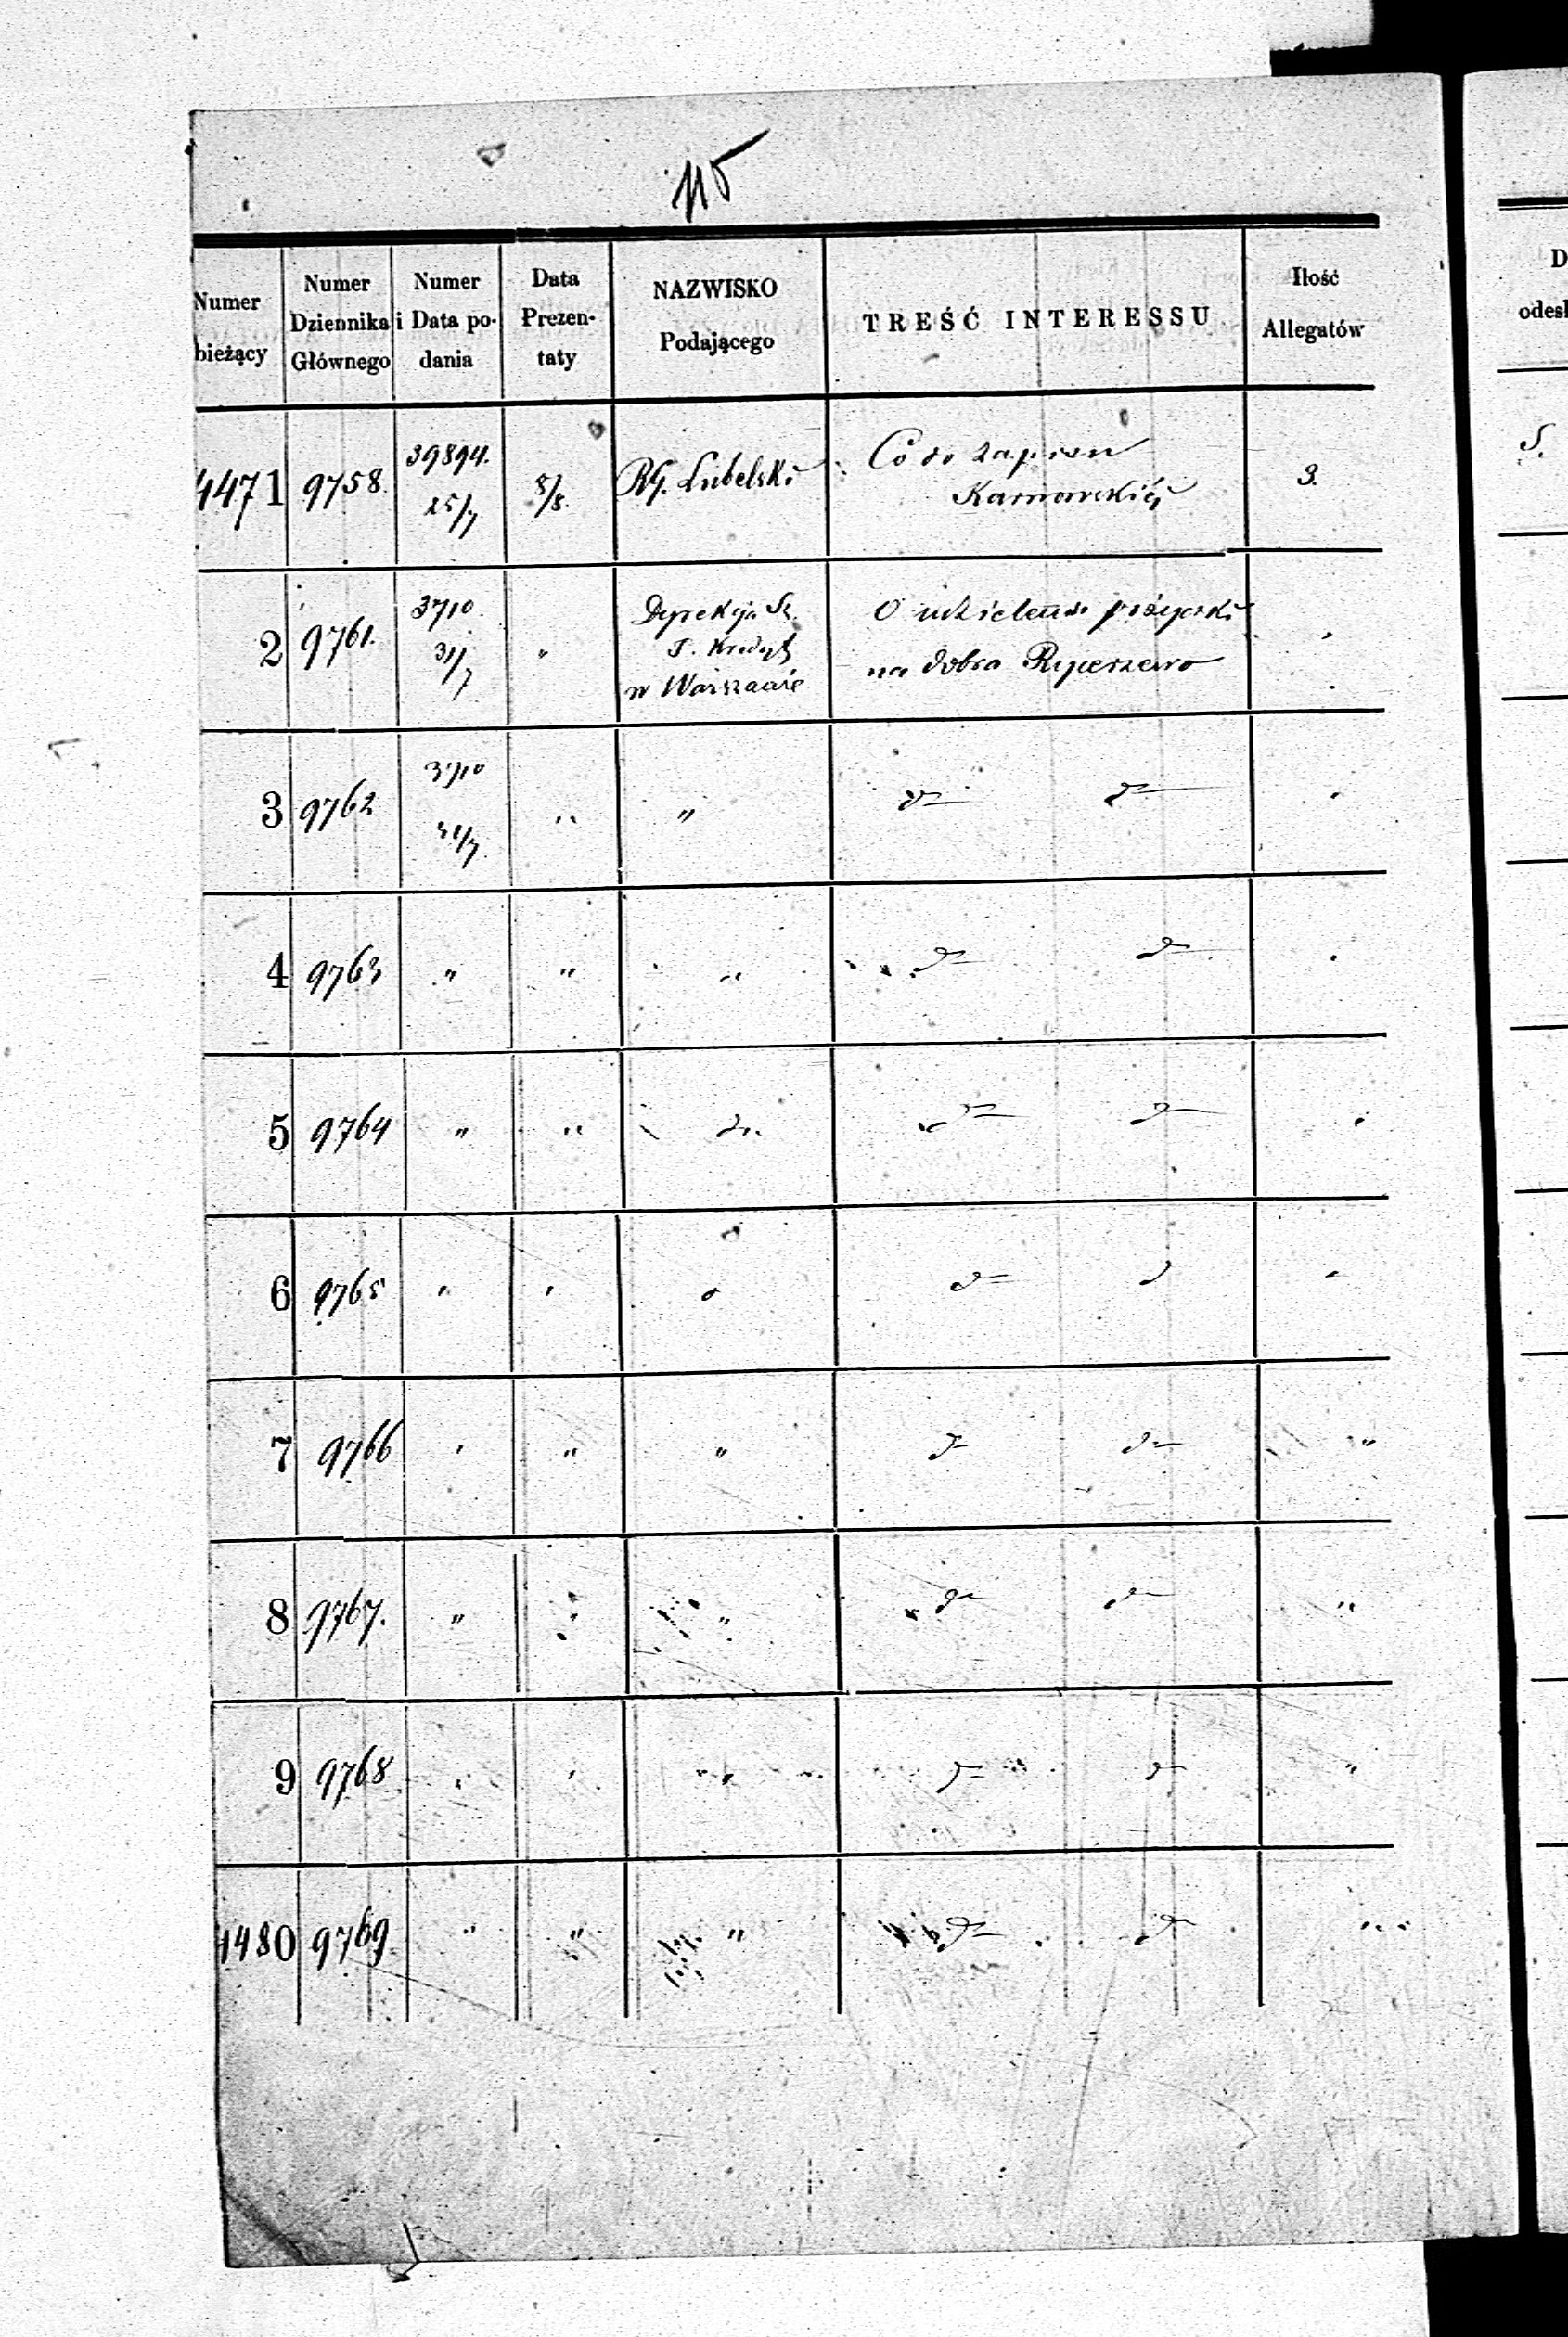 115
Numer bieżący
Numer Dziennika Głównego
Numer i Data podania
Data Prezentaty
NAZWISKO Podającego
TREŚĆ INTERESSU
Ilość Allegatów
4471 9758. 39894. 25/7 8/8. RG. Lubelski Co do zapisu 3.
2 9761. 3710. 31/7 " Dyrekcja Sz. O udzielenie pożyczki
T. Kredyt na dobra
w Warszawie
3 9762 3710 31/7 " " d= d=
4 9763 " " " d= d=
5 9764 " " d= d=
6 9765 " " d= d
7 9766 " " " d= d= "
8 9767. " " d= d= "
9 9768 " " " d= d= "
4480 9769 " " " d= d= "
D
odesł
S.